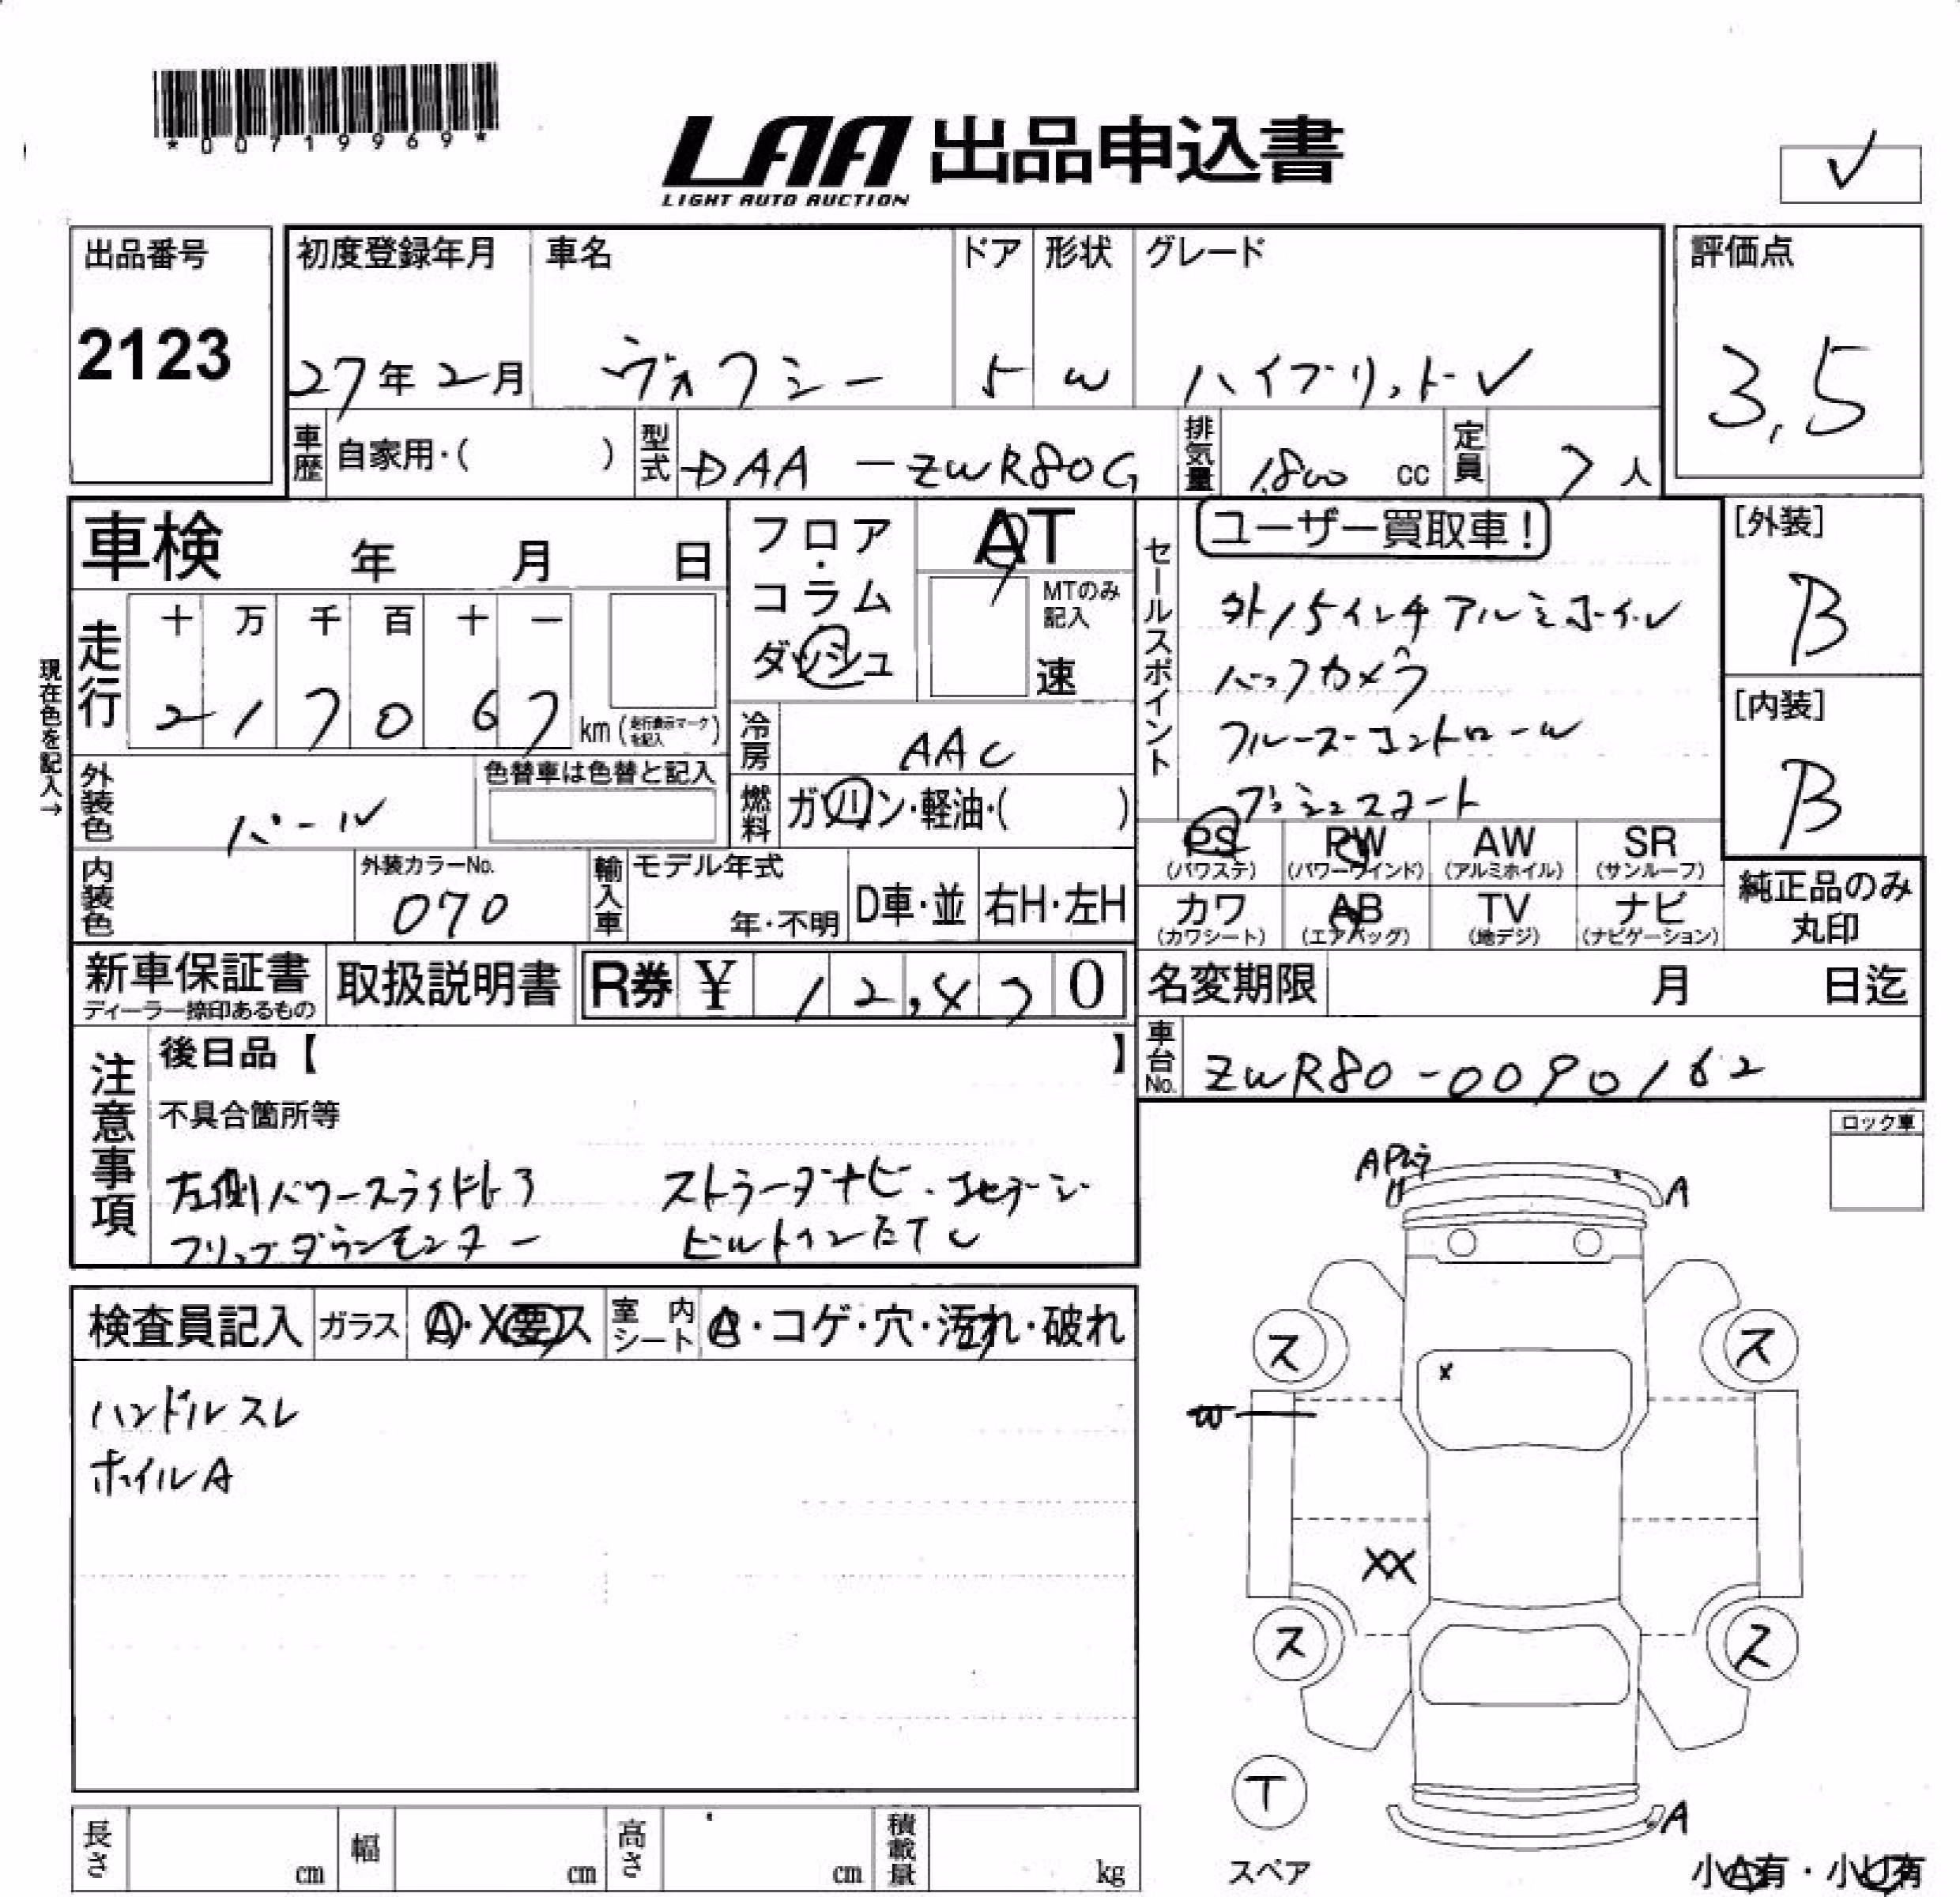 *00719969*
LAA 出品申込書
LIGHT AUTO AUCTION
✓
出品番号
2123
初度登録年月 車名 ドア 形状 グレード
27年2月 ヴォクシー 5 W ハイブリットV
評価点
3.5
車歴 自家用・( ) 型式 DAA-ZWR80G 排気量 1,800 cc 定員 7人
車検 年 月 日
フロア・コラム
ダッシュ
AT
MTのみ記入
速
現在色を記入→
走行 十 万 千 百 十 一
2 1 7 0 6 7 km (走行表示マークを記入)
冷房 AAC
燃料 ガソリン・軽油・( )
外装色 パール 色替車は色替と記入
内装色 外装カラーNo. 070
輸入車 モデル年式 年・不明 D車・並 右H・左H
新車保証書 取扱説明書 R券 ¥ 12,870
ディーラー捺印あるもの
セールスポイント
ユーザー買取車!
外15インチアルミホイル
バックカメラ
クルーズコントロール
プッシュスタート
[外装]
B
[内装]
B
PS PW AW SR
(パワステ) (パワーウインド) (アルミホイル) (サンルーフ)
カワ AB TV ナビ
(カワシート) (エアバッグ) (地デジ) (ナビゲーション)
純正品のみ
丸印
名変期限 月 日迄
車台No. ZWR80-0090162
注意事項
後日品【 】
不具合箇所等
左側パワースライドドア ストラーダナビ・地デジ
フリップダウンモニター ビルトインETC
ロック車
検査員記入 ガラス A・X要ス 室内シート A・コゲ・穴・汚れ・破れ
ハンドルスレ
ホイルA
A
A
ス ス
x
W
XX
ス ス
T
スペア
A
小A有・小U有
長さ cm 幅 cm 高さ cm 積載量 kg